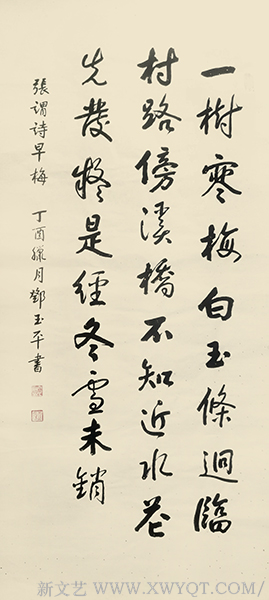 一樹寒梅白玉條迥臨
村路傍溪橋不知近水花
先發疑是經冬雪未銷
張謂詩早梅 丁酉臘月鄧玉平書
新文艺 WWW.XWYQT.COM